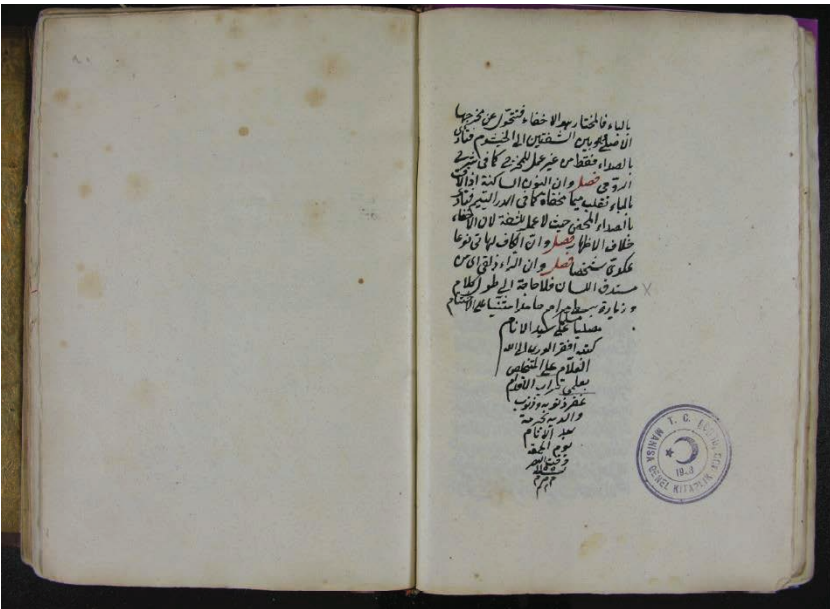 بالباء فالمختار هو الاخفاء فتتحول عن مخرجها
الاصلي وبين الشفتين الى الخيشوم فتأدى
بالصداء فقط من غير عمل للمخرج كما في شرح
الرومى فصل وان النون الساكنة اذا لاقت
بالباء تقلب ميما مخفاة كما في الدر اليتيم فتأدى
بالصداء المحض حيث لا عمل للشفة لان الاخفاء
خلاف الاظهار فصل وان الكاف لها تى نوعا
فصل وان الراء ذلقى اى من
مستدق اللسان فلا حاجة الى طول الكلام
وزيادة بسط مرام حامدا على الاختتام
مصليا على سيد الانام
كتبه افقر الورى الى الله
العلام على المتخلص
بعلمى تراب الاقدام
غفر ذنوبه وذنوب
والديه بحرمة
سيد الانام
يوم الجمعة
T. C.
MANİSA GENEL KİTAPLIK